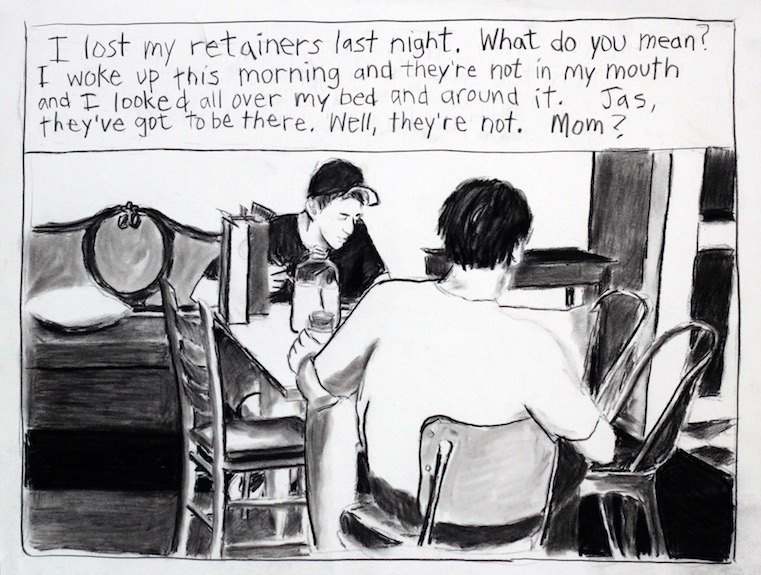 I lost my retainers last night. What do you mean?
I woke up this morning and they're not in my mouth
and I looked all over my bed and around it. Jas,
they've got to be there. Well, they're not. Mom?